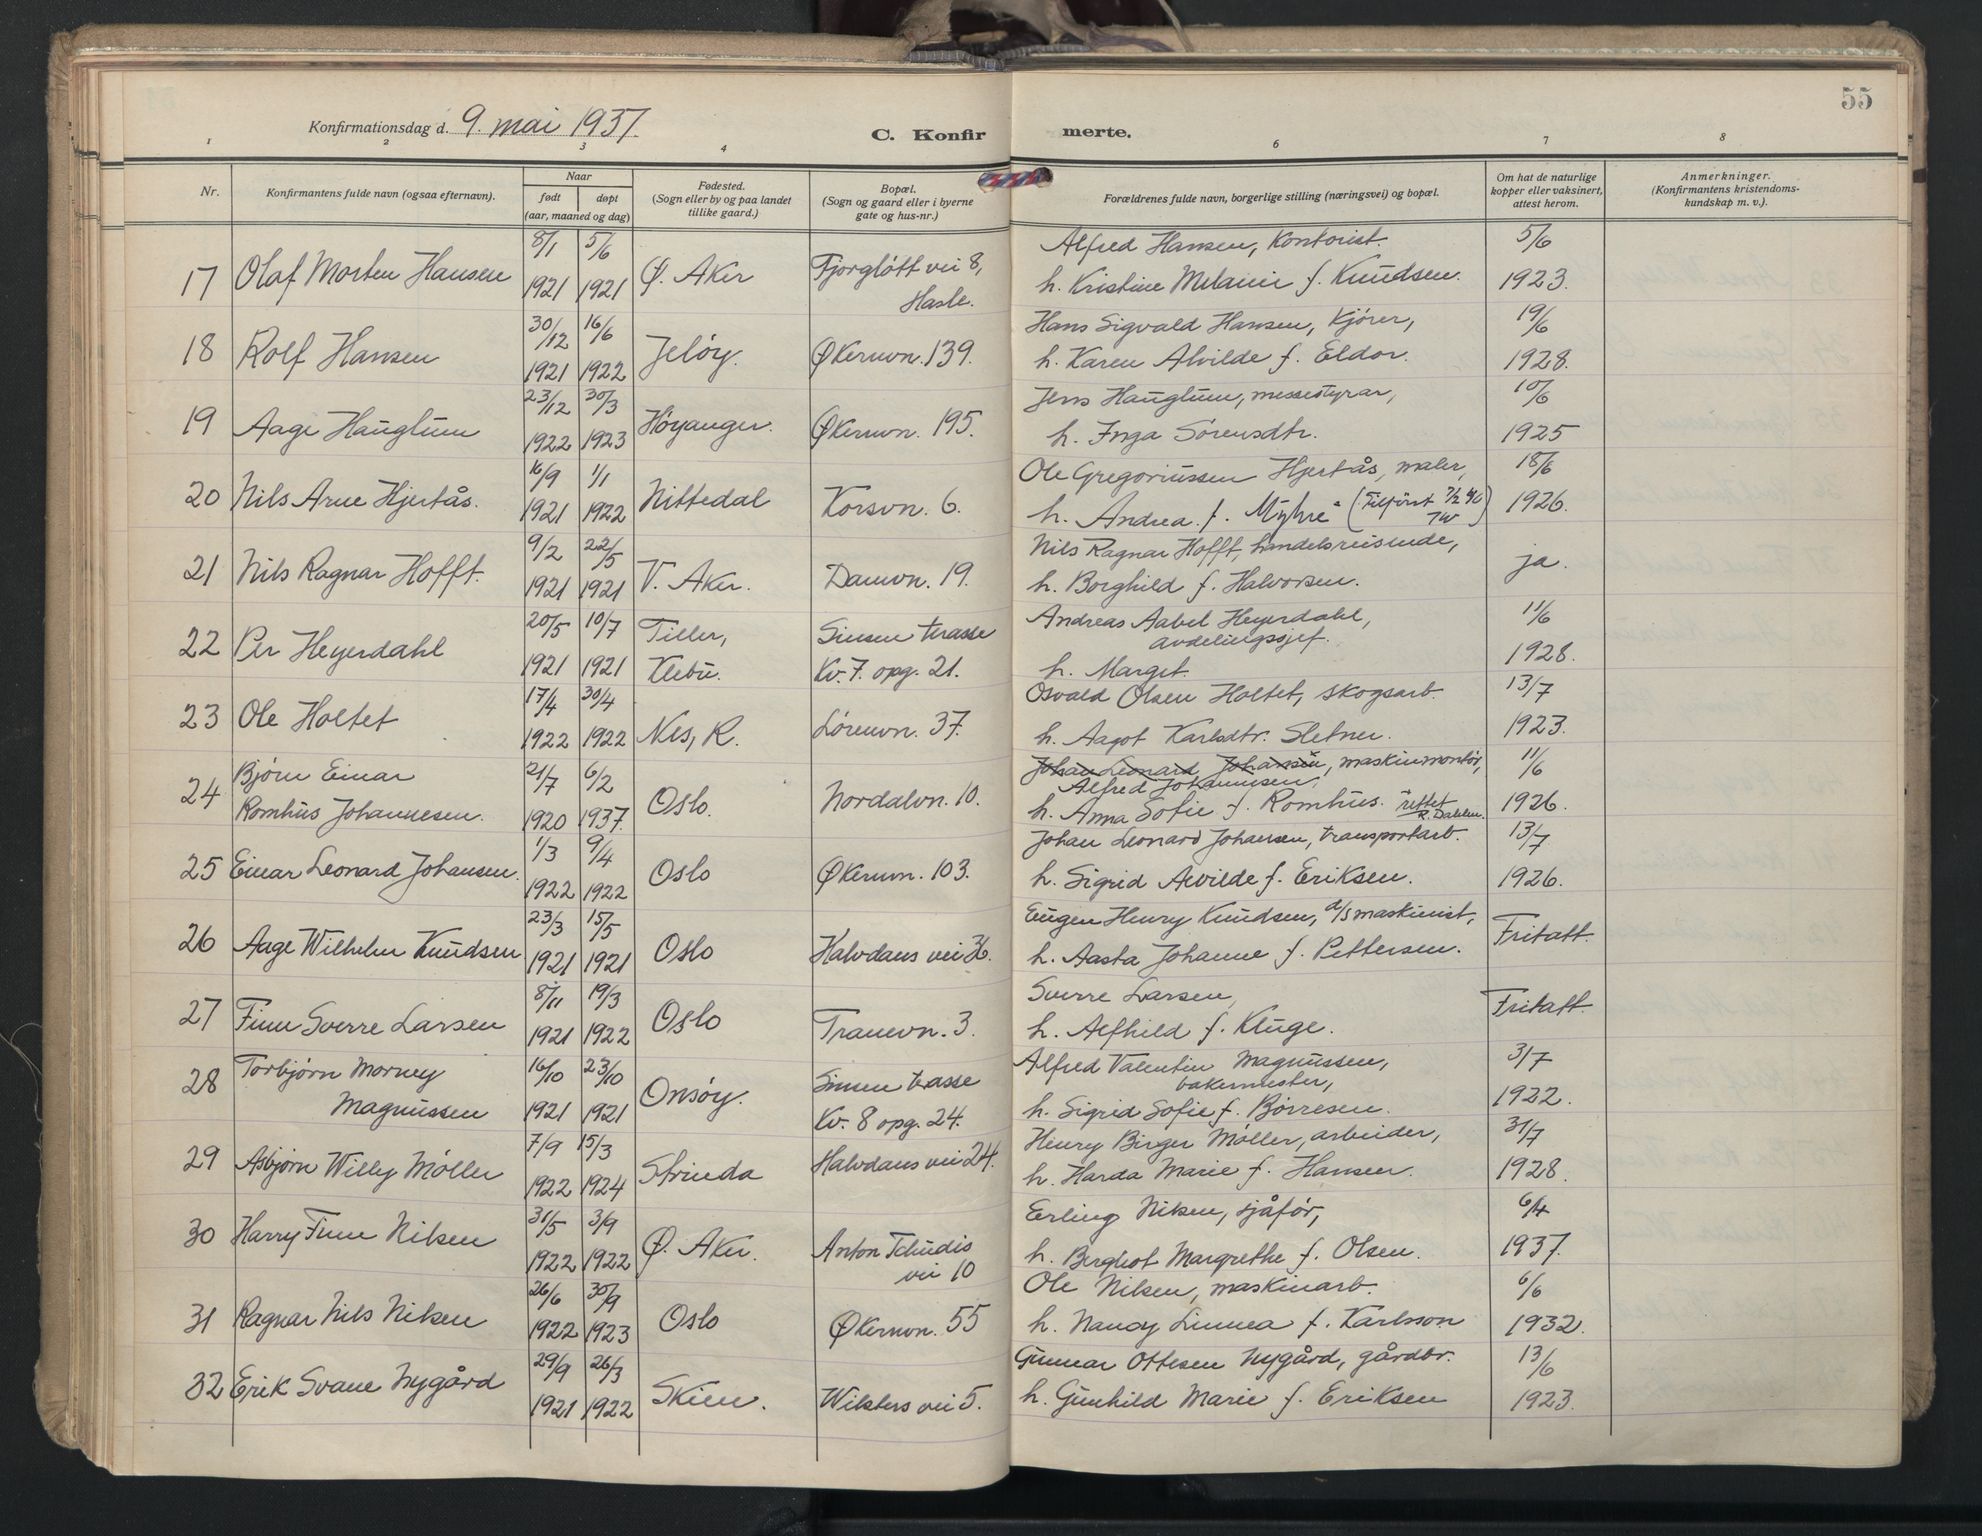 55
Konfirmationsdag d. 9. mai 1937.
C. Konfirmerte.
1 2 3 4 6 7 8
Nr.
Konfirmantens fulde navn (ogsaa efternavn).
Naar
født døpt
(aar, maaned og dag)
Fødested.
(Sogn eller by og paa landet
tillike gaard.)
Bopæl.
(Sogn og gaard eller i byerne
gate og hus-nr.)
Forældrenes fulde navn, borgerlige stilling (næringsvei) og bopæl.
Om hat de naturlige
kopper eller vaksinert,
attest herom.
Anmerkninger.
(Konfirmantens kristendoms-
kundskap m. v.).
8/1 5/6 Alfred Hansen, Kontorist. 5/6
17 Olaf Morten Hansen 1921 1921 Ø. Aker Fjorgløtt vei 8, Hasle. h. Kristine Melanie f. Knudsen. 1923.
30/12 16/6 Hans Sigvald Hansen, Kjører, 19/6
18 Rolf Hansen 1921 1922 Jeløy. Økernvn. 139. h. Karen Alvilde f. Eldor. 1928.
23/12 30/3 Jens Hauglum, messestyrar, 10/6
19 Aage Hauglum 1922 1923 Høyanger. Økernvn. 195. h. Inga Sørensdtr. 1925
16/9 1/1 Ole Gregoriussen Hjertås, maler, 18/6
20 Nils Arne Hjertås. 1921 1922 Nittedal Korsvn. 6. h. Andrea f. Myhre (Tilført 7/2 40 TW) 1926.
9/2 22/5 Nils Ragnar Hofft, handelsreisende,
21 Nils Ragnar Hofft. 1921 1921 V. Aker. Damvn. 19. h. Borghild f. Halvorsen. ja.
20/5 10/7 Tiller, Sinsen terasse Andreas Aabel Heyerdahl, avdelingssjef. 11/6
22 Per Heyerdahl 1921 1921 Klebu. Kv. 7. opg. 21. h. Margit. 1928.
17/4 30/4 Osvald Olsen Holtet, skogsarb. 13/7
23 Ole Holtet 1922 1922 Nes, R. Lørenvn. 37. h. Aagot Karlsdtr. Sletner. 1923.
Bjørn Einar 21/7 6/2 Johan Leonard Johansen, maskinmontør, 11/6
Alfred Johannesen.
24 Romhus Johannesen. 1920 1937. Oslo. Nordalvn. 10. h. Anna Sofie f. Romhus. rettet R. Dahlen. 1926.
1/3 9/4 Johan Leonard Johansen, transportarb. 13/7
25 Einar Leonard Johansen. 1922 1922 Oslo Økernvn. 103. h. Sigrid Alvilde f. Eriksen. 1926.
23/3 15/5 Eugen Henry Knudsen, d/s maskinist,
26 Aage Wilhelm Knudsen 1921 1921 Oslo Halvdans vei 36. h. Aasta Johanne f. Pettersen. Fritatt.
8/11 19/3 Sverre Larsen,
27 Finn Sverre Larsen 1921 1922 Oslo Tranevn. 3. h. Alfhild f. Kluge. Fritatt.
Torbjørn Morney 16/10 23/10 Sinsen terasse Alfred Valentin Magnussen, bakermester, 3/7
28 Magnussen 1921 1921 Onsøy. Kv. 8 opg. 24. h. Sigrid Sofie f. Børresen. 1922.
7/9 15/3 Henry Birger Møller, arbeider, 31/7
29 Asbjørn Willy Møller 1922 1924 Strinda Halvdans vei 24. h. Harda Marie f. Hansen. 1928.
31/5 3/9 Erling Nilsen, sjåfør, 6/4
30 Harry Finn Nilsen 1922 1922 Ø. Aker. Anton Tchudis vei 10 h. Bergliot Margrethe f. Olsen. 1937.
26/6 30/9 Ole Nilsen, maskinarb. 6/6
31 Ragnar Nils Nilsen 1922 1923 Oslo Økernvn. 55 h. Nancy Linnea f. Karlsson 1932.
29/9 26/3 Gunnar Ottesen Nygård, gårdbr. 13/6
32 Erik Svane Nygård 1921 1922 Skien. Wilsters vei 5. h. Gunhild Marie f. Eriksen 1923.